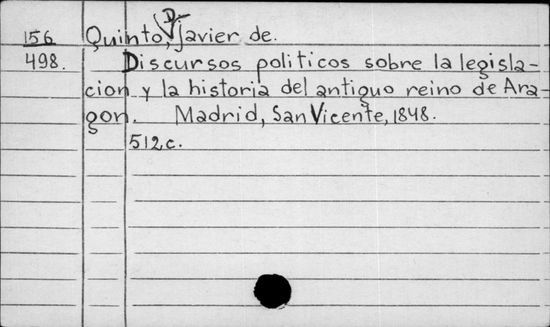 156
498.
Quinto, D. Javier de.
Discursos politicos sobre la legisla-
cion y la historia del antiguo reino de Ara-
gon. Madrid, San Vicente, 1848.
512,c.